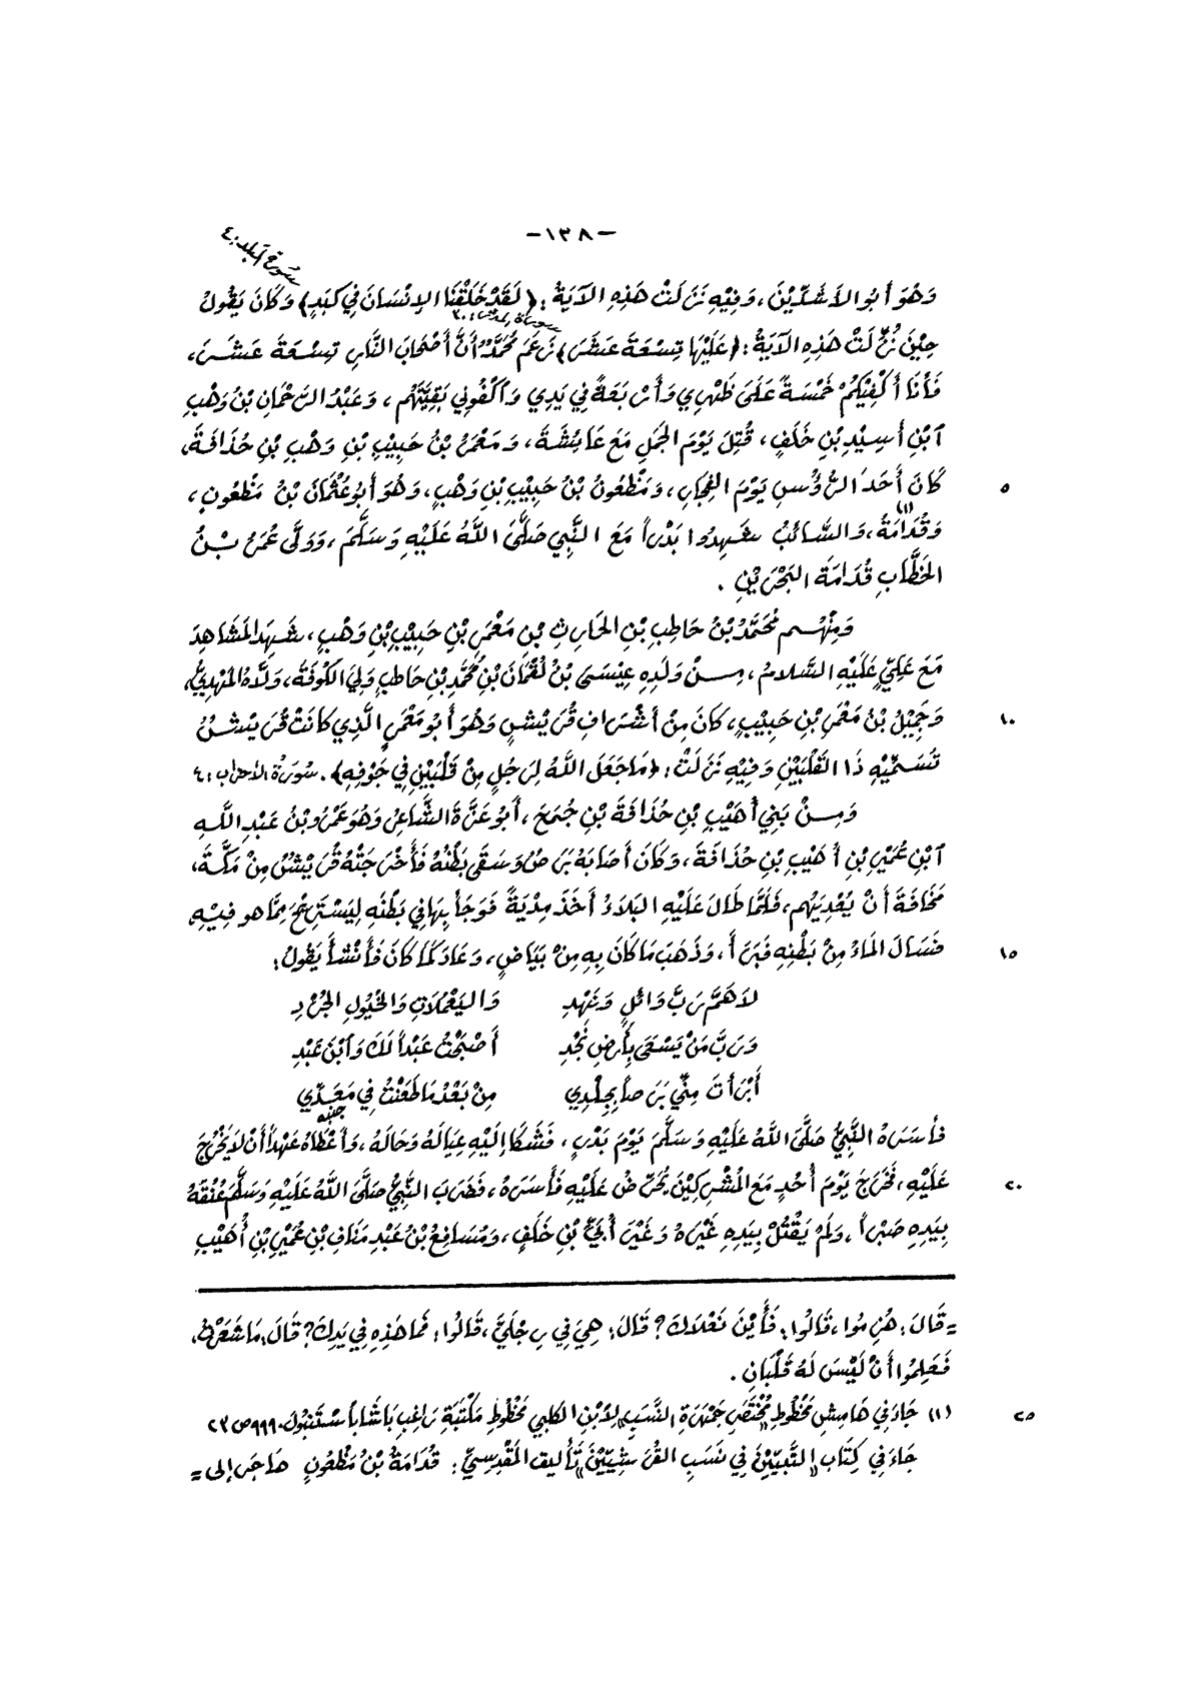 -١٣٨-
سورة البلد: ٤
وَهُوَ أَبُو الأَشَدَّيْنَ، وَفِيْهِ نَزَلَتْ هَذِهِ الآيَةُ: ﴿لَقَدْ خَلَقْنَا الإنْسَانَ فِي كَبَدٍ﴾ وَكَانَ يَقُولُ
سورة المدثر: ٣٠
حِيْنَ نُزِّلَتْ هَذِهِ الآيَةُ: ﴿عَلَيْهَا تِسْعَةَ عَشَرَ﴾ زَعَمَ مُحَمَّدٌ أَنَّ أَصْحَابَ النَّارِ تِسْعَةَ عَشَرَ،
فَأَنَا أَكْفِيْكُمْ خَمْسَةً عَلَى ظَهْرِي وَأَرْبَعَةً فِي يَدِي وَاكْفُونِي بَقِيَّتَهُم، وَعَبْدُ الرَّحْمَانِ بْنُ وَهْبِ
ٱبْنِ أُسِيْدِ بْنِ خَلَفٍ، قُتِلَ يَوْمَ الجَمَلِ مَعَ عَائِشَةَ، وَمَعْمَرُ بْنُ حَبِيْبِ بْنِ وَهْبِ بْنِ حُذَافَةَ،
كَانَ أَحَدَ الرُّؤُسِ يَوْمَ الفِجَارِ، وَمَظْعُونُ بْنُ حَبِيْبِ بْنِ وَهْبٍ، وَهُوَ أَبُو عُثْمَانَ بْنُ مَظْعُونٍ، ٥
وَقُدَامَةُ(١)، وَالسَّائِبُ شَهِدُوا بَدْراً مَعَ النَّبِيِّ صَلَّى اللَّهُ عَلَيْهِ وَسَلَّمَ، وَوَلَّى عُمَرُ بْنُ
الخَطَّابِ قُدَامَةَ البَحْرَيْنِ.
وَمِنْهُم مُحَمَّدُ بْنُ حَاطِبِ بْنِ الحَارِثِ بْنِ مَعْمَرِ بْنِ حَبِيْبِ بْنِ وَهْبٍ، شَهِدَ المَشَاهِدَ
مَعَ عَلِيٍّ عَلَيْهِ السَّلامُ، مِنْ وَلَدِهِ عِيْسَى بْنُ لُقْمَانَ بْنِ مُحَمَّدِ بْنِ حَاطِبٍ وَلِيَ الكُوفَةَ، وَلَّاهُ المَهْدِيُّ،
وَجَمِيْلُ بْنُ مَعْمَرِ بْنِ حَبِيْبٍ، كَانَ مِنْ أَشْرَافِ قُرَيْشٍ وَهُوَ أَبُو مَعْمَرٍ الَّذِي كَانَتْ قُرَيْشٌ ١٠
تُسَمِّيْهِ ذَا القَلْبَيْنِ وَفِيْهِ نَزَلَتْ: ﴿مَا جَعَلَ اللَّهُ لِرَجُلٍ مِنْ قَلْبَيْنِ فِي جَوْفِهِ﴾. سُورَةُ الأحزاب: ٤
وَمِنْ بَنِي أُهَيْبِ بْنِ حُذَافَةَ بْنِ جُمَحَ، أَبُو عَزَّةَ الشَّاعِرُ وَهُوَ عَمْرُو بْنُ عَبْدِ اللَّهِ
ٱبْنِ عُمَيْرِ بْنِ أُهَيْبِ بْنِ حُذَافَةَ، وَكَانَ أَصَابَهُ بَرَصٌ وَسَقَى بَطْنُهُ فَأَخْرَجَتْهُ قُرَيْشٌ مِنْ مَكَّةَ،
مَخَافَةَ أَنْ يُعْدِيَهُم، فَلَمَّا طَالَ عَلَيْهِ البَلاَءُ أَخَذَ مِدْيَةً فَوَجَأَ بِهَا فِي بَطْنِهِ لِيَسْتَرِيْحَ مِمَّا هو فِيْهِ
فَسَالَ المَاءُ مِنْ بَطْنِهِ فَبَرَأَ، وَذَهَبَ مَا كَانَ بِهِ مِنْ بَيَاضٍ، وَعَادَ كَمَا كَانَ فَأَنْشَأَ يَقُولُ: ١٥
لاَهُمَّ رَبَّ وَائِلٍ وَنَهْدِ وَاليَعْمَلاَتِ وَالخُيُولِ الجُرْدِ
وَرَبَّ مَنْ يَسْعَى بِأَرْضِ نَجْدِ أَصْبَحْتُ عَبْداً لَكَ وَٱبْنَ عَبْدِ
أَبْرَأْتَ مِنِّي بَرَصاً بِجِلْدِي مِنْ بَعْدُ مَا طَعَنْتُ فِي مَعَدِّي
جنبه
فأسَرَهُ النَّبِيُّ صَلَّى اللَّهُ عَلَيْهِ وَسَلَّمَ يَوْمَ بَدْرٍ، فَشَكَا إِلَيْهِ عِيَالَهُ وَحَالَهُ، وَأَعْطَاهُ عَهْداً أَنْ لاَ يَخْرُجَ
عَلَيْهِ، فَخَرَجَ يَوْمَ أُحُدٍ مَعَ المُشْرِكِيْنَ يُحَرِّضُ عَلَيْهِ فَأَسَرَهُ، فَضَرَبَ النَّبِيُّ صَلَّى اللَّهُ عَلَيْهِ وَسَلَّمَ عُنُقَهُ ٢٠
بِيَدِهِ صَبْراً، وَلَمْ يَقْتُلْ بِيَدِهِ غَيْرَهُ وَغَيْرَ أُبَيِّ بْنِ خَلَفٍ، وَمُسَافِعُ بْنُ عَبْدِ مَنَافِ بْنِ عُمَيْرِ بْنِ أُهَيْبِ
= قَالَ: هُزِمُوا، قَالُوا: فَأَيْنَ نَعْلاَكَ؟ قَالَ: هِيَ فِي رِجْلَيَّ، قَالُوا: فَمَا هَذِهِ فِي يَدِكَ؟ قَالَ: مَا شَعَرْتُ،
فَعَلِمُوا أَنْ لَيْسَ لَهُ قَلْبَانِ.
(١) جَاءَ فِي هَامِشِ مَخْطُوطِ «مُخْتَصَرِ جَمْهَرَةِ النَّسَبِ» لِابْنِ الكَلْبِي مَخْطُوطِ مَكْتَبَةِ رَاغِب بَاشَا بِاسْتَنْبُوكَ. ٩٩٩ ص ٢٣ ٢٥
جَاءَ فِي كِتَابِ «التَّبْيِيْنُ فِي نَسَبِ القُرَشِيِّيْنَ» تَأْلِيفِ المَقْدِسِيِّ: قُدَامَةُ بْنُ مَظْعُونٍ هَاجَرَ إلى =